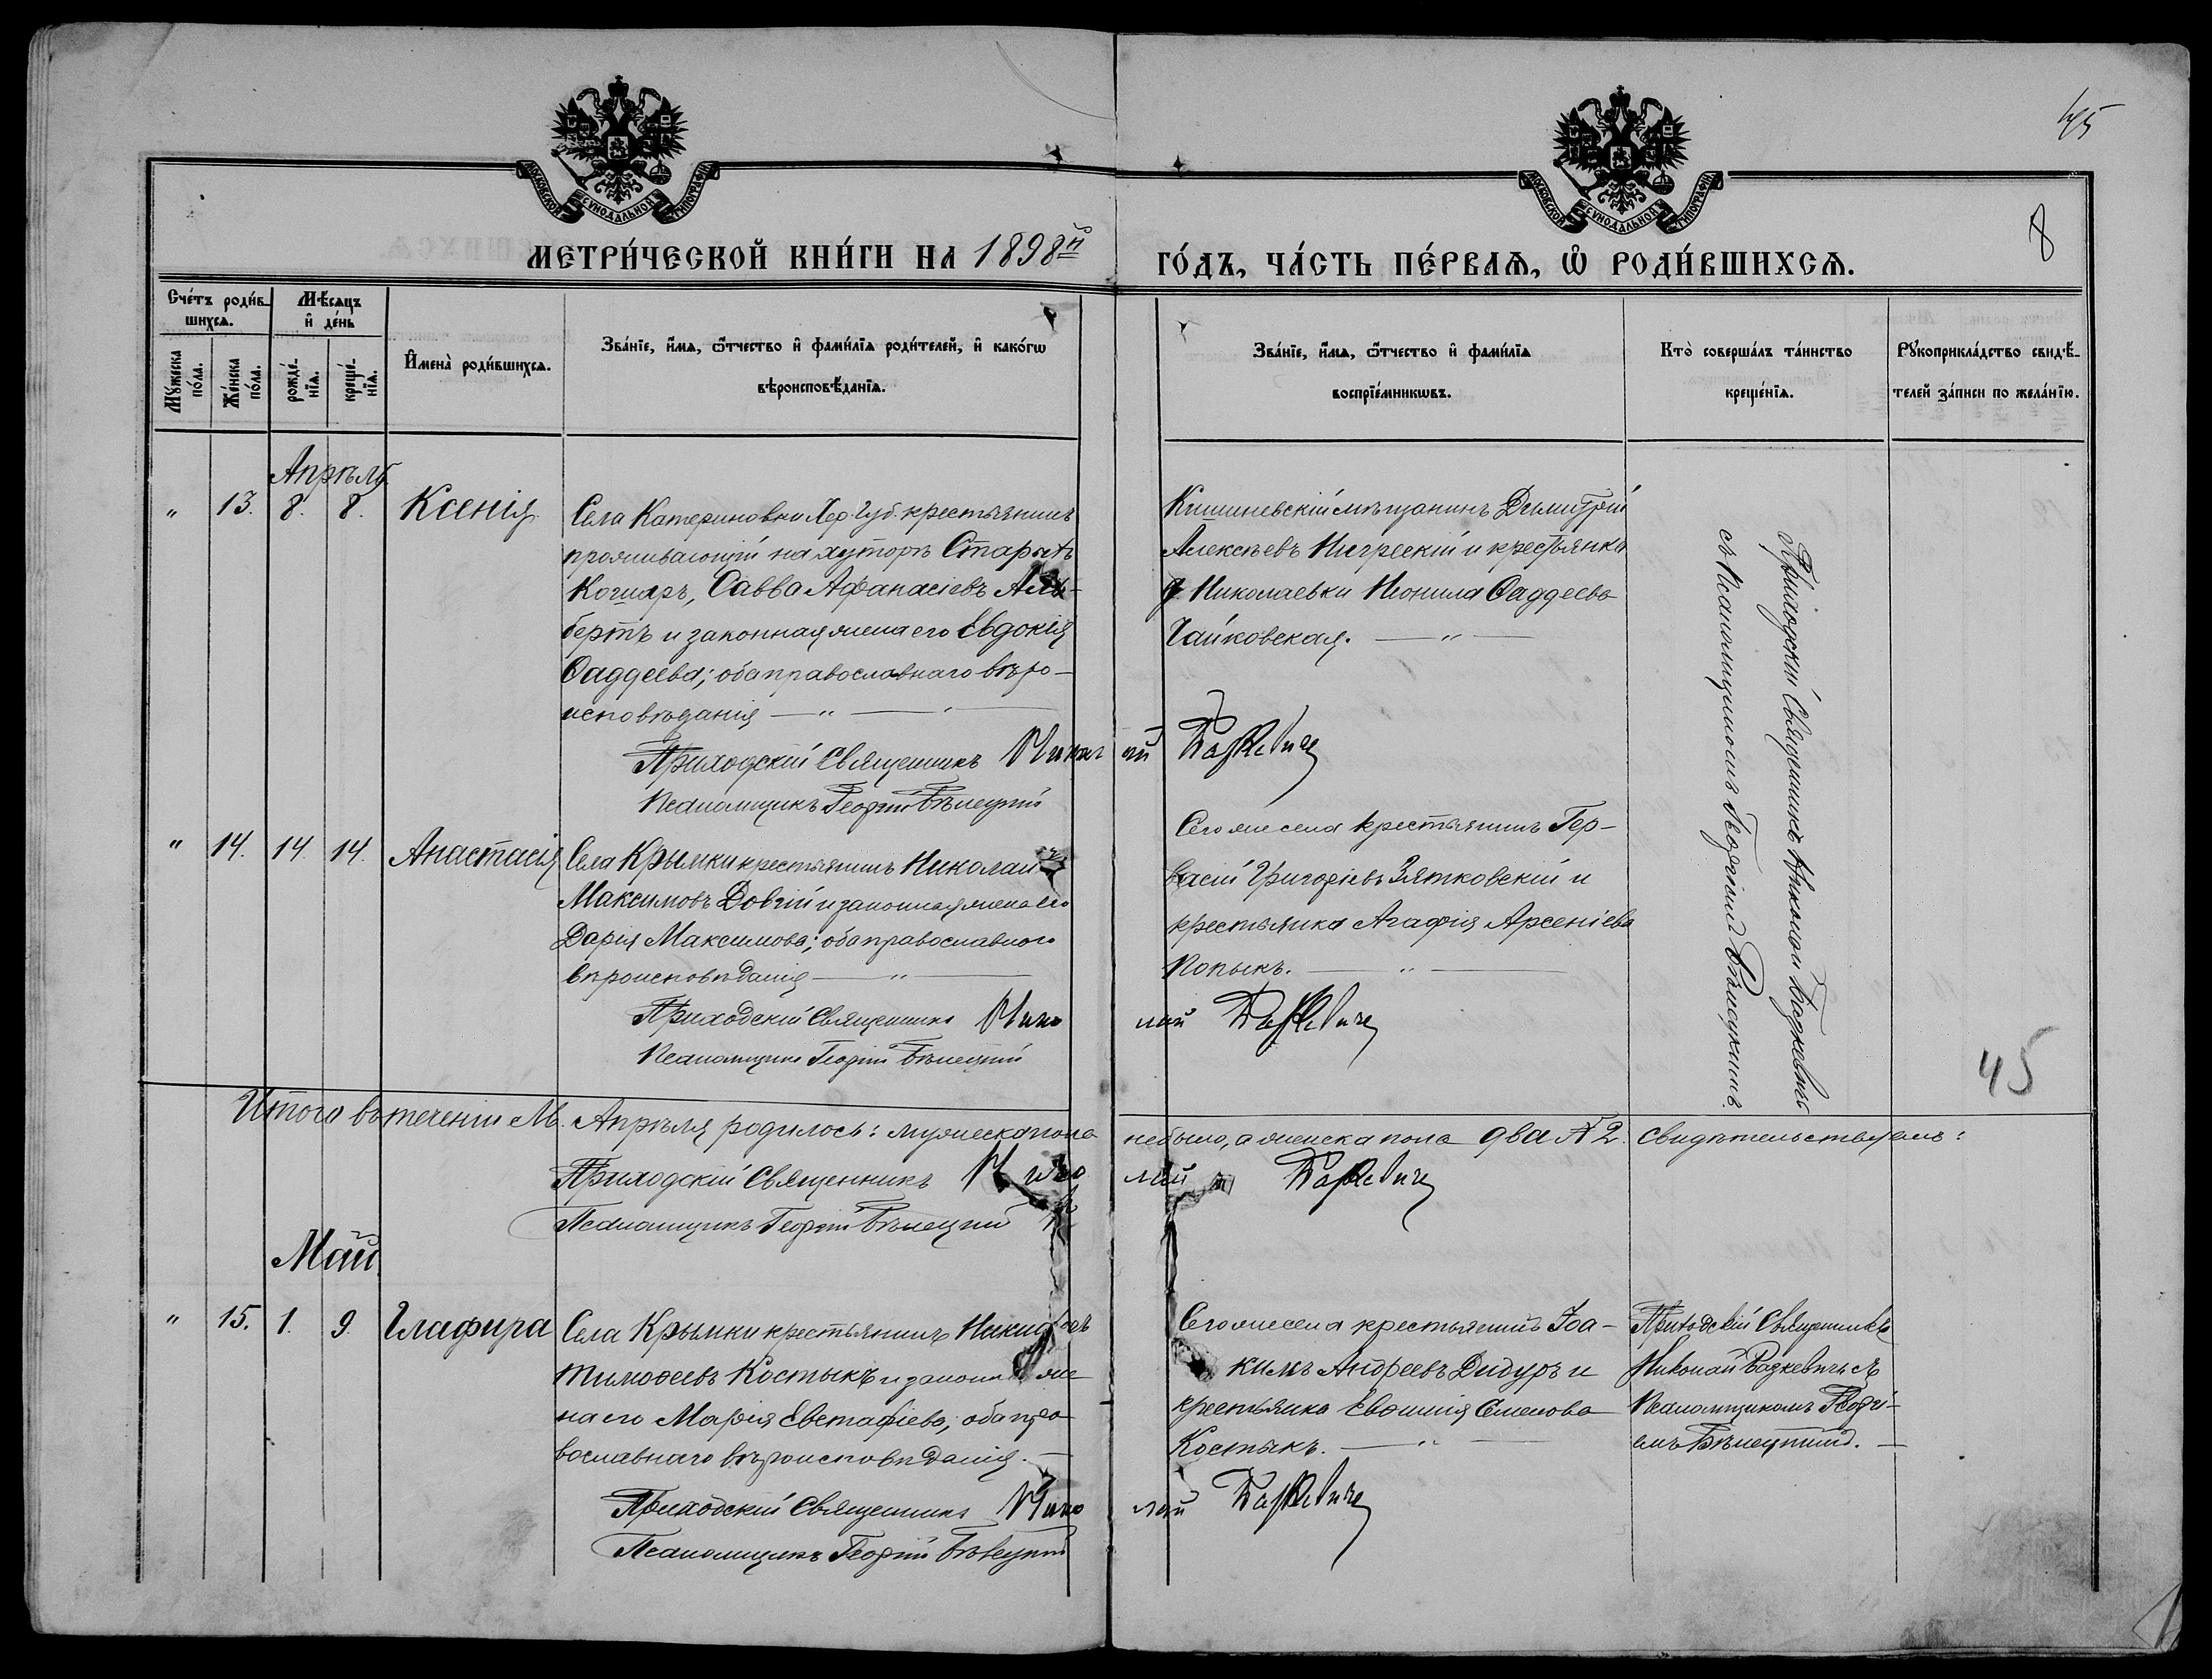 45
8
МОСКОВСКОЙ СУНОДАЛЬНОЙ ТИПОГРАФІИ
МОСКОВСКОЙ СУНОДАЛЬНОЙ ТИПОГРАФІИ
МЕТРИ́ЧЕСКОЙ КНИ́ГИ НА 1898й
ГО́ДЪ, ЧА́СТЬ ПЕ́РВАѦ, Ѽ РОДИ́ВШИХСѦ.
Сче́тъ роди́в-
шихсѧ.
Мѣ́сѧцъ
и҆ де́нь
Мꙋ́жеска
по́ла.
Же́нска
по́ла.
рожде́-
нїѧ.
креще́-
нїѧ.
И҆мена̀ роди́вшихсѧ.
Зва́нїе, и҆́мѧ, ѻ҆́тчество и҆ фами́лїѧ роди́телей, и҆ како́гѡ
вѣроисповѣ́данїѧ.
Зва́нїе, и҆́мѧ, ѻ҆́тчество и҆ фами́лїѧ
воспрїе́мникѡвъ.
Кто̀ соверша́лъ та́инство
креще́нїѧ.
Рꙋкоприкла́дство свидѣ́-
телей за́писи по жела́нїю.
Апрѣль
" 13. 8. 8. Ксенія
Села Катериновки Хер. Губ. крестьянинъ
проживающій на хуторѣ Старый
Кошаръ, Савва Афанасіевъ Аль-
бертъ и законная жена его Евдокія
Ѳаддеева; оба православнаго вѣро-
исповѣданія — " —
Приходскій Священникъ Николай Бацкевичъ
Псаломщикъ Георгій Бѣлецкій
Кишиневскій мѣщанинъ Димитрій
Алексѣевъ Нигрескій и крестьянка
д. Николаевки Неонила Ѳаддеева
Чайковская. — " —
Приходскій Священникъ Николай Бацкевичъ
съ Псаломщикомъ Георгіемъ Бѣлецкимъ.
" 14. 14. 14. Анастасія
Села Крымки крестьянинъ Николай
Максимовъ Довгій и законная жена его
Дарія Максимова; оба православнаго
вѣроисповѣданія — " —
Приходскій Священникъ Николай Бацкевичъ
Псаломщикъ Георгій Бѣлецкій
Того же села крестьянинъ Гер-
васій Григоріевъ Зятковскій и
крестьянка Агафія Арсеніева
Копыкъ. — " —
45
Итого въ теченіи М. Апрѣля родилось: мужеска пола не было, а женска пола два № 2. Свидѣтельствуемъ:
Приходскій Священникъ Николай Бацкевичъ
Псаломщикъ Георгій Бѣлецкій
Май
" 15. 1. 9. Глафира
Села Крымки крестьянинъ
Тимоѳеевъ Костыкъ и законная же-
на его Марія Евстафіева; оба пра-
вославнаго вѣроисповѣданія. —
Приходскій Священникъ Николай Бацкевичъ
Псаломщикъ Георгій Бѣлецкій
Того же села крестьянинъ Іоа-
кимъ Андреевъ Дидуръ и
крестьянка Евѳимія Семенова
Костыкъ. — " —
Приходскій Священникъ
Николай Бацкевичъ съ
Псаломщикомъ Георгі-
емъ Бѣлецкимъ. —